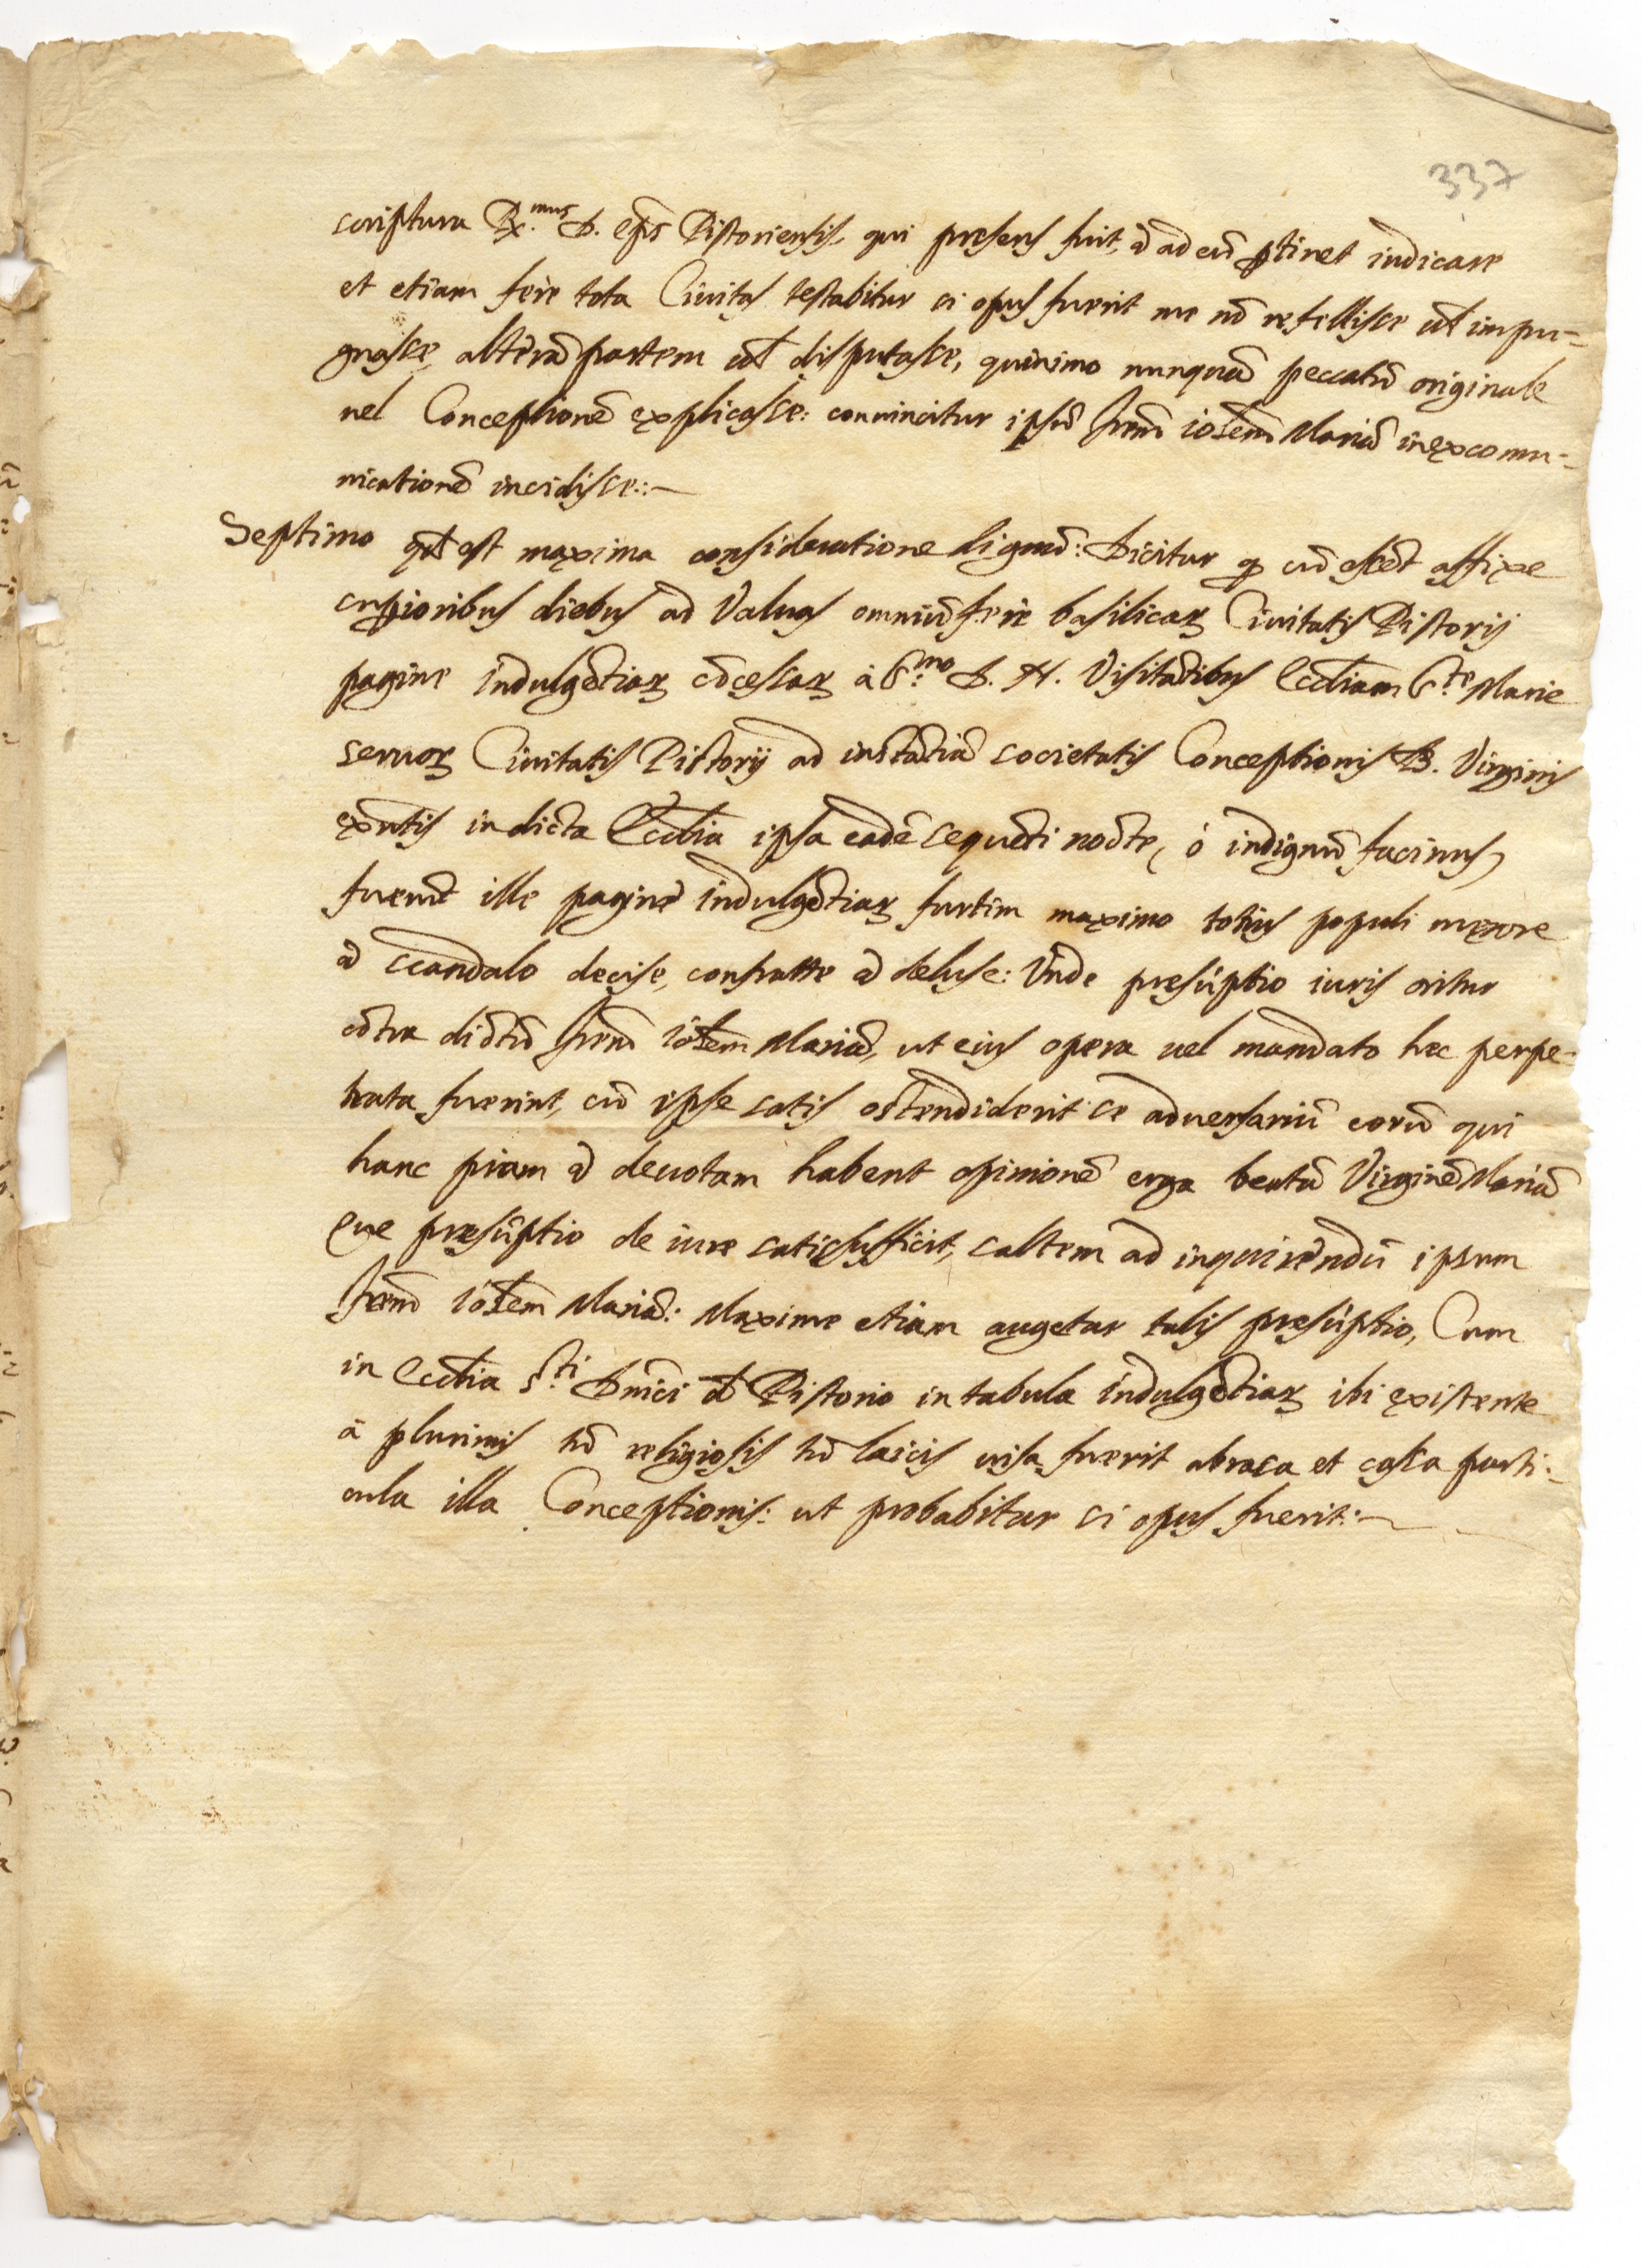 337
scriptura R.mus D. ep̃s Pistoriensis, qui presens fuit, & ad eũ ꝑtinet iudicare
et etiam fere tota Ciuitas testabitur si opus fuerit me nõ refellisse uł impu-
gnasse alterã partem uł disputasse, quinimo nunquã peccatũ originale
uel Conceptionẽ explicasse: conuincitur ipsũ frẽm ioẽm Mariã in excomu-
nicationẽ incidisse:
Septimo qđ est maxima consideratione dignũ: dicitur ꝙ cũ essẽt affixe
superioribus diebus ad Valuas omniũ fere basilicaꝝ Ciuitatis Pistorij
pagine indulgẽtiaꝝ cõcessaꝝ à S.mo D. N. Visitãtibus Eccłiam S.te Marie
seruoꝝ Ciuitatis Pistorij ad instãtiã societatis Conceptionis B. Virginis
exñtis in dicta Eccłia ipsa eadẽ sequẽti nocte, ( ó indignũ facinus )
fuerũt ille pagine indulgẽtiaꝝ furtim maximo totius populi merore
& scandalo decise, confratte & deluse: Unde presũptio iuris oritur
cõtra dictũ frẽm ioẽm Mariã, ut eius opera uel mandato hec perpe-
trata fuerint, cũ ipse satis ostendiderit se aduersariũ eorũ qui
hanc piam & deuotam habent opinionẽ erga beatã Virginẽ Mariã
Que presũptio de iure satis sufficit, saltem ad inquirendũ ipsum
frẽm ioẽm Mariã: Maxime etiam augetur talis presũptio, Cum
in Eccłia S.ti Dñici đ Pistorio in tabula indulgẽtiaꝝ ibi existente
à plurimis tũ religiosis tũ laicis uisa fuerit abrasa et cassa parti-
cula illa Conceptionis: ut probabitur si opus fuerit: